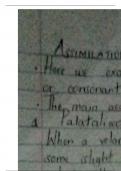 ASSIMILATIO
• Here we exa
or consonant
• The main ass
1 Palatalisa
When a velar
some slight